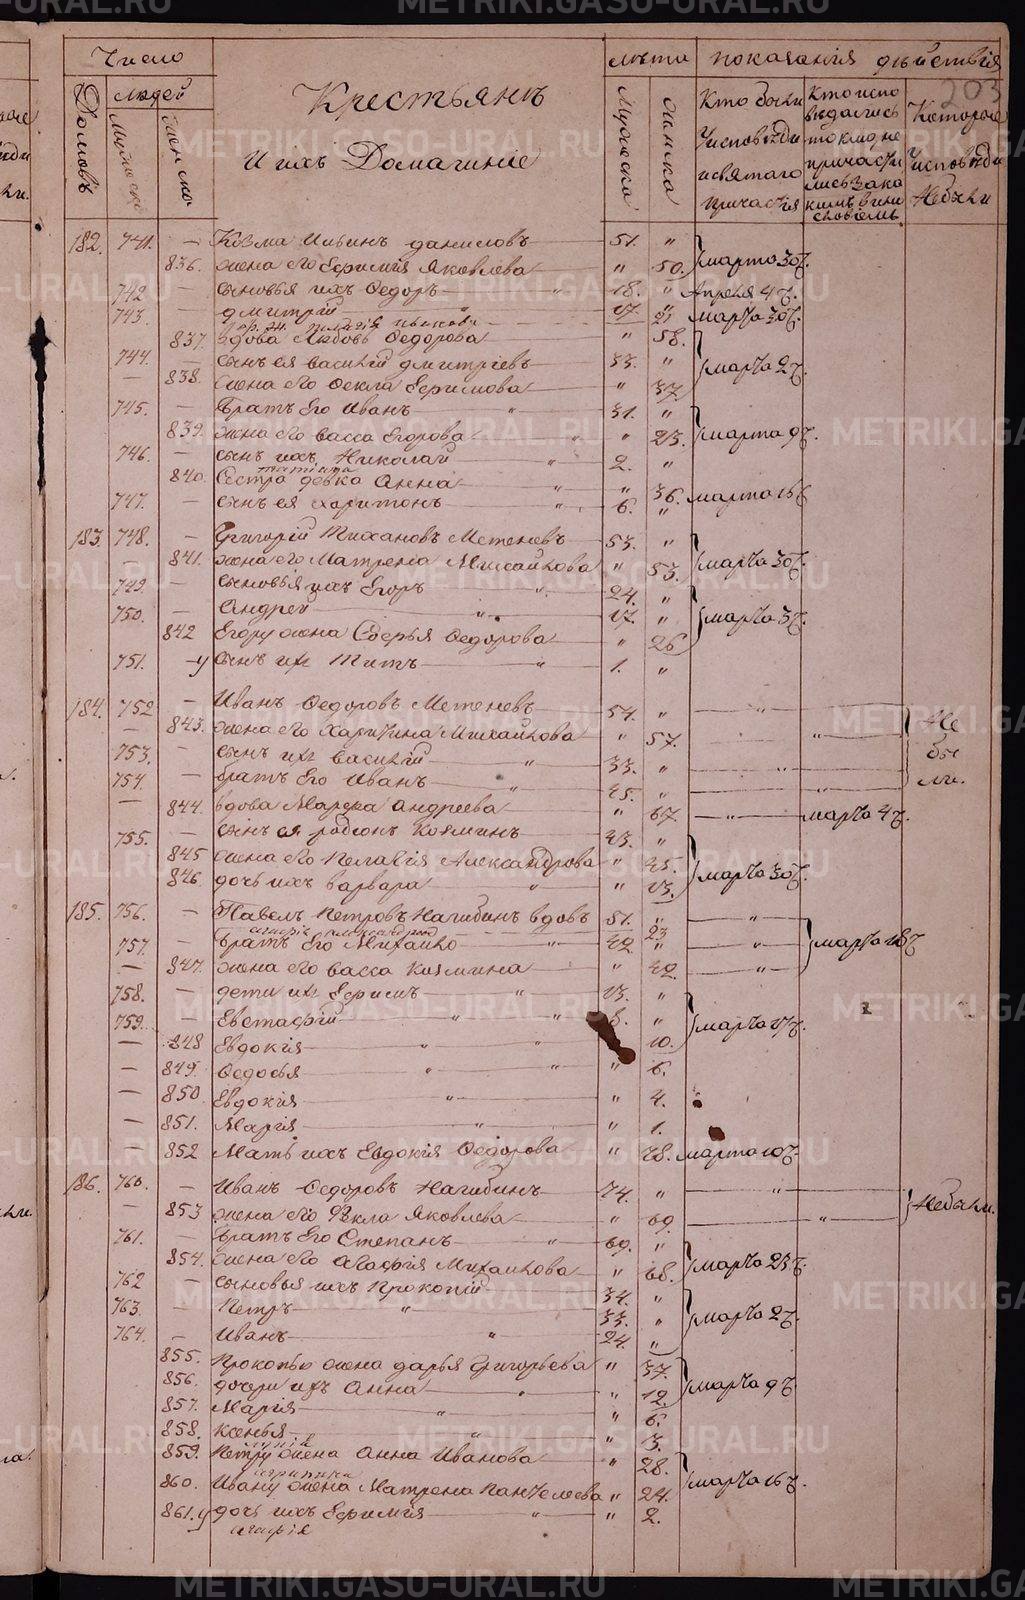 Число
Крестьянъ
и ихъ Домашніе
лѣта
показанія дѣйствія
203
Домовъ
людей
Мужеска
Женско
Мужеска
Женска
Кто были у исповѣди и святаго причастія
Кто исповѣдались токмо а не причастились и за какимъ виннословіемъ
Которые у исповѣди небыли
182. 741. — Козма Ильинъ Даниловъ 51. "
836. жена его Ефимія Яковлева " 50. Марта 30 ч.
742 — сыновья ихъ Федоръ " 18. " Апреля 4 ч.
743. — Дмитрій " 17. Марта 30 ч.
837. вдова Любовь Федорова " 58.
744. — сынъ ея Василій Дмитріевъ 33. " Марта 2 ч.
— 838. жена его Фекла Ефимова " 37.
745. — братъ Его Иванъ " 31. "
839. жена его Васса Егорова " " 23. Марта 9 ч.
746. — сынъ ихъ Николай " 2. "
840. Сестра девка Анна " " 36. Марта 16 ч.
747. — сынъ ея Харитонъ " 6. "
183. 748. — Григорій Тихановъ Метеневъ 53. "
— 841. жена его Матрена Михайлова " 53. Марта 30 ч.
749. — сыновья ихъ Егоръ " 24. "
750. — Андрей " 17. " Марта 3 ч.
842 Егору жена Софья Федорова " 26
751. — у сынъ ихъ Титъ " 1. "
184. 752 — Иванъ Федоровъ Метеневъ 54. " "
— 843. жена его Харитина Михайлова " 57. " Не
753. — сынъ ихъ Василій " 33. " " бы
754. — братъ Его Иванъ " 25. " " ли.
— 844. вдова Марфа Андреева " 67. " Марта 4 ч.
755. — сынъ ея Родіонъ Козминъ 23. "
845 жена его Пелагія Александрова " 25. Марта 30 ч.
846. дочь ихъ Варвара " " 13.
185. 756. — Павелъ Петровъ Нагибинъ вдовъ 51. " "
757. — братъ Его Михайло " 42 " " Марта 18 ч
— 847. жена его Васса Козмина " 42. "
758. — дети ихъ Ефимъ " 13. "
759. — Евстафій " " 8. " Марта 17 ч.
— 848 Евдокія " " 10.
— 849. Федосья " " " 6.
— 850. Евдокія " " 4.
— 851. Марія " " 1.
— 852 Мать ихъ Евдокія Федорова " 78. Марта 10 ч.
186. 760. — Иванъ Федоровъ Нагибинъ 74. " "
— 853 жена его Фекла Яковлева " 69. " Небыли.
761. — братъ Его Степанъ " 69. "
854. жена его Агафія Михайлова " 68. Марта 23 ч.
762 — сыновья ихъ Прокопій 34. "
763. — Петръ " 33. " Марта 2 ч.
764. — Иванъ " 24. "
855. Прокопью жена Дарья Григорьева " 37.
856. дочери ихъ Анна " " 12. Марта 9 ч
857. Марія " " 6.
858. Ксенья " " 3.
859. Петру жена Анна Иванова " 28.
860. Ивану жена Матрена Пантелеева " 24. Марта 16 ч.
861. у дочь ихъ Ефимія " " 2.
METRIKI.GASO-URAL.RU